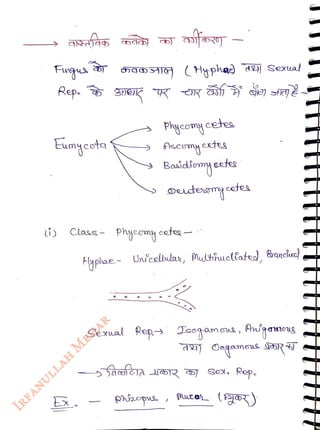 → वास्तविक कवको का वर्गीकरण -
Fungus को कवकजाल (Hyphae) तथा Sexual
Rep. के आधार पर चार वर्गो में बाँटा जाता है -
Eumycota
→ Phycomycetes
→ Ascomycetes
→ Basidiomycetes
→ Deuteromycetes
(i) Class - Phycomycetes -
Hyphae - Unicellular, Multinucliated, Branched
Sexual Rep → Isogamous, Anigamous
तथा Oogamous प्रकार का
→ विकसित प्रकार का Sex. Rep.
Ex. - Rhizopus, Mucor (म्यूकर)
IRFANULLAH